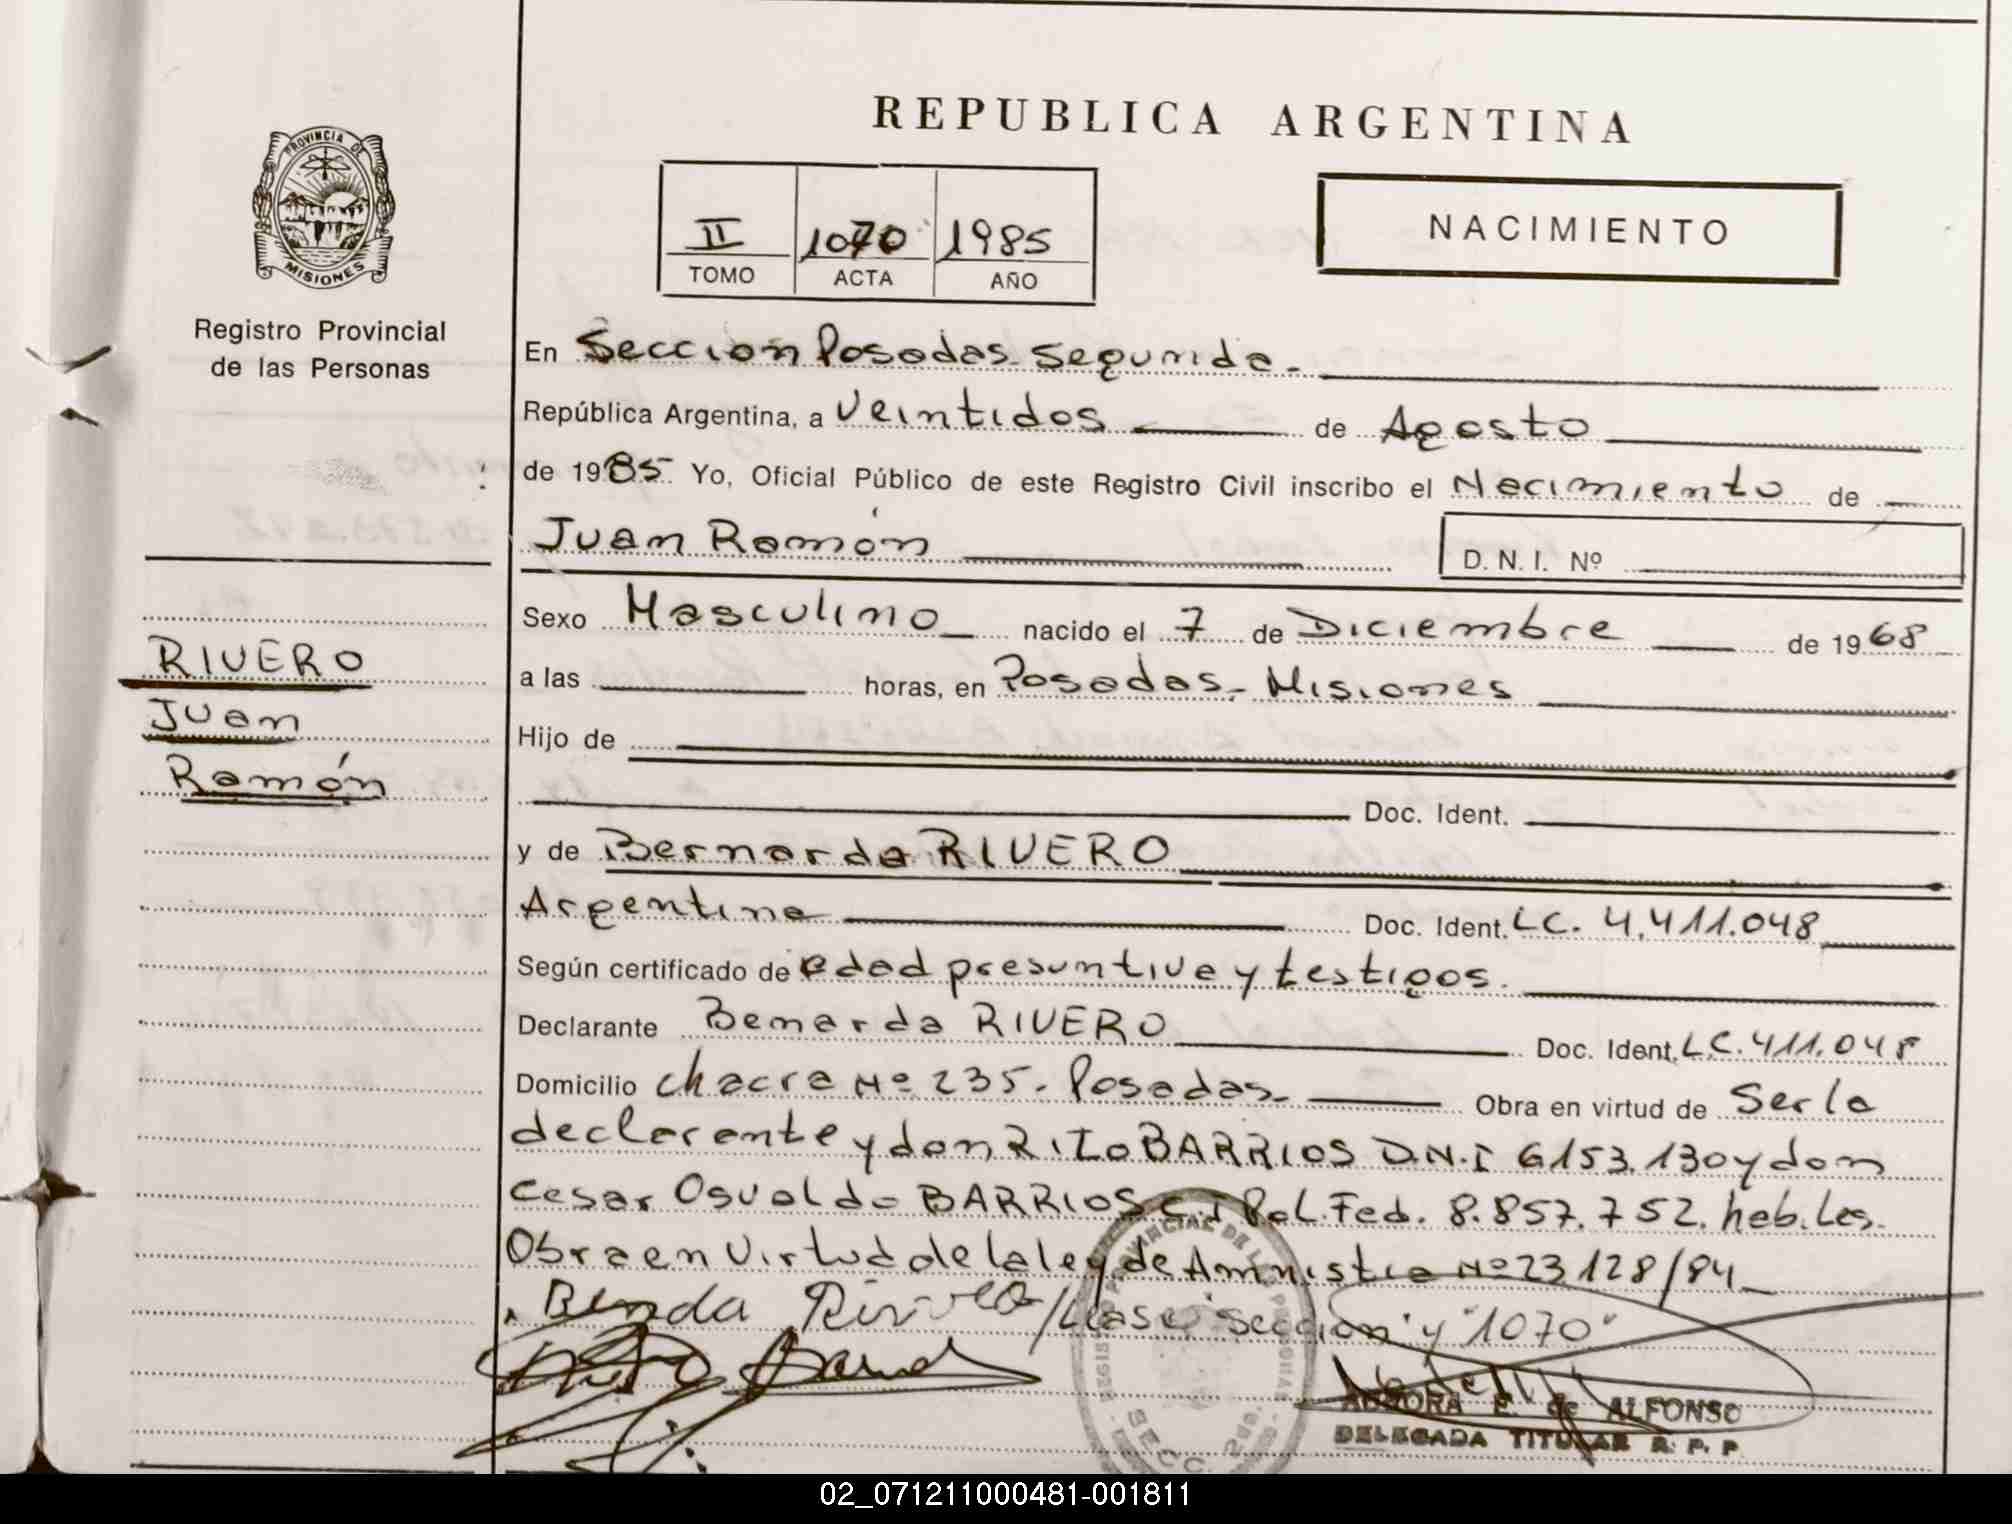 REPUBLICA ARGENTINA
PROVINCIA DE
MISIONES
Registro Provincial
de las Personas
NACIMIENTO
II 1070 1985
TOMO ACTA AÑO
En Seccion Posadas Segunda.
República Argentina, a Veintidos de Agosto
de 1985 Yo, Oficial Público de este Registro Civil inscribo el Nacimiento de
Juan Ramón D. N. I. Nº
RIVERO
Juan
Ramón
Sexo Masculino nacido el 7 de Diciembre de 1968
a las horas, en Posadas - Misiones
Hijo de
Doc. Ident.
y de Bernarda RIVERO
Argentina Doc. Ident. LC. 4.411.048
Según certificado de edad presuntiva y testigos.
Declarante Bernarda RIVERO Doc. Ident. L.C. 411.048
Domicilio chacra Nº 235. Posadas Obra en virtud de Ser la
declarante y don RITO BARRIOS D.N.I 6153.130 y don
Cesar Osvaldo BARRIOS C.I Pol. Fed. 8.857.752. hab. Les.
Obra en virtud de la ley de Amnistia Nº 23128/84
Rivero / Lease: "Seccion" y "1070"
AURORA E. de ALFONSO
DELEGADA TITULAR R. P. P.
02_071211000481-001811